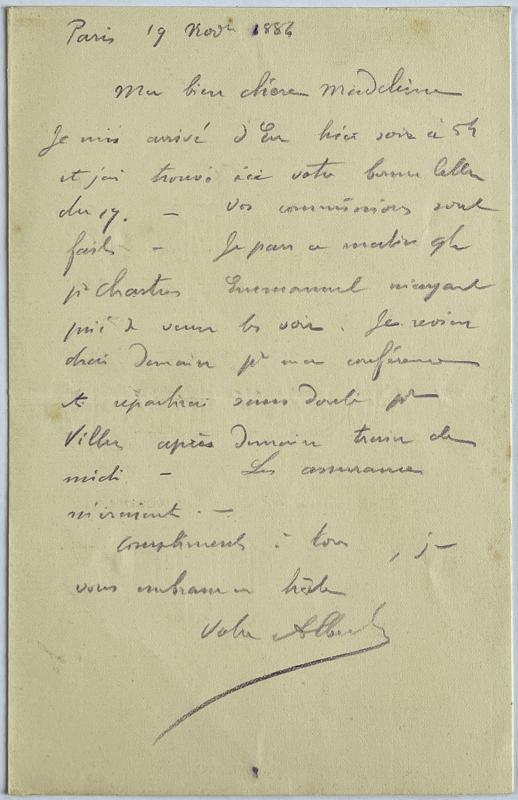 Paris 19 Nov 1886
Ma bien chère Madeleine
Je suis arrivé d'Eu hier soir à 5h
et j'ai trouvé ici votre bonne lettre
du 17. — Vos commissions sont
faites — Je pars ce matin 9h
pr Chartres Emmanuel m'ayant
prié de venir les voir. Je reviendrai
demain pr ma conférence
et repartirai sans doute pr
Villers après demain train de
midi — Les assurances
. —
Compliments à tous, je
vous embrasse en hâte
Votre Albert